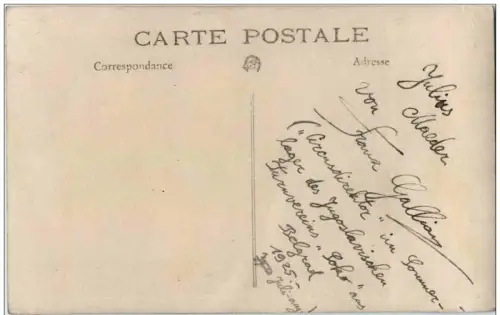 CARTE POSTALE
Correspondance
Adresse
Julius
Maeder
von
Franz
("Circusdirektor" im Sommer-
lager des Jugoslavischen
Turnvereins "Soko" aus
Belgrad
1925.